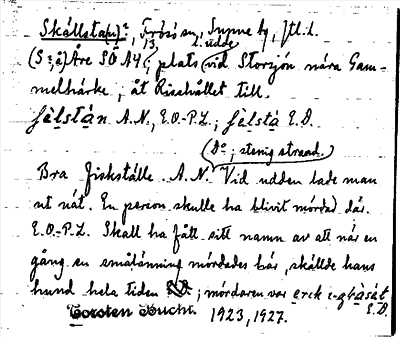 Skållsta(n)?, Frösö sn, Sunne tg, Jtl. l.
(S:ø) Åre SO A4; 13, plats (vid Storsjön nära Gam-
l. udde
melhärke, åt Risshållet till.
A.N., E.O.-P.L.; E.D.
(Do; stenig strand.)
Bra fiskställe. A.N. Vid udden lade man
ut nät. En person skulle ha blivit mördad där.
E.O.-P.L. Skall ha fått sitt namn av att när en
gång en smålänning mördades här, skällde hans
hund hela tiden; mördaren var
E.D.
Torsten Bucht. 1923, 1927.